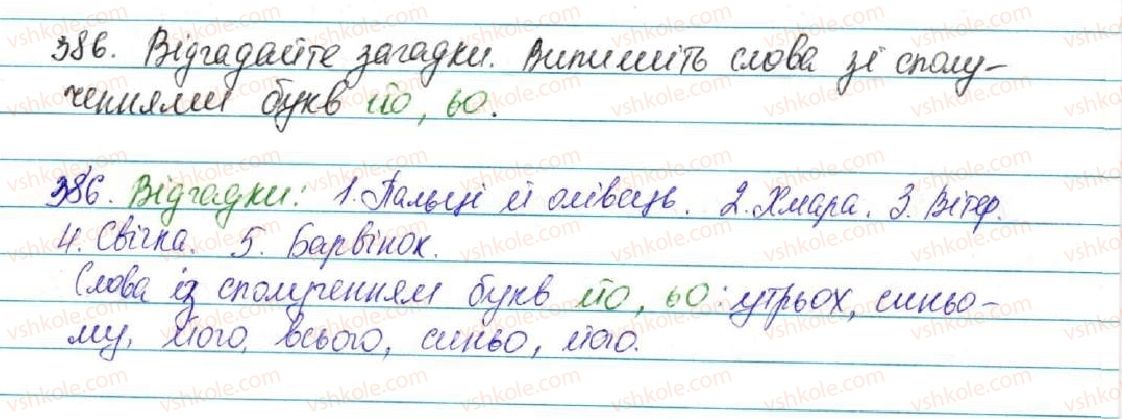 386. Відгадайте загадки. Випишіть слова зі сполу-
ченнями букв йо, ьо.
386. Відгадки: 1. Пальці й олівець. 2. Хмара. 3. Вітер.
4. Свічка. 5. Барвінок.
Слова із сполученням букв йо, ьо: утрьох, синьо-
му, його, всього, синьо, його.